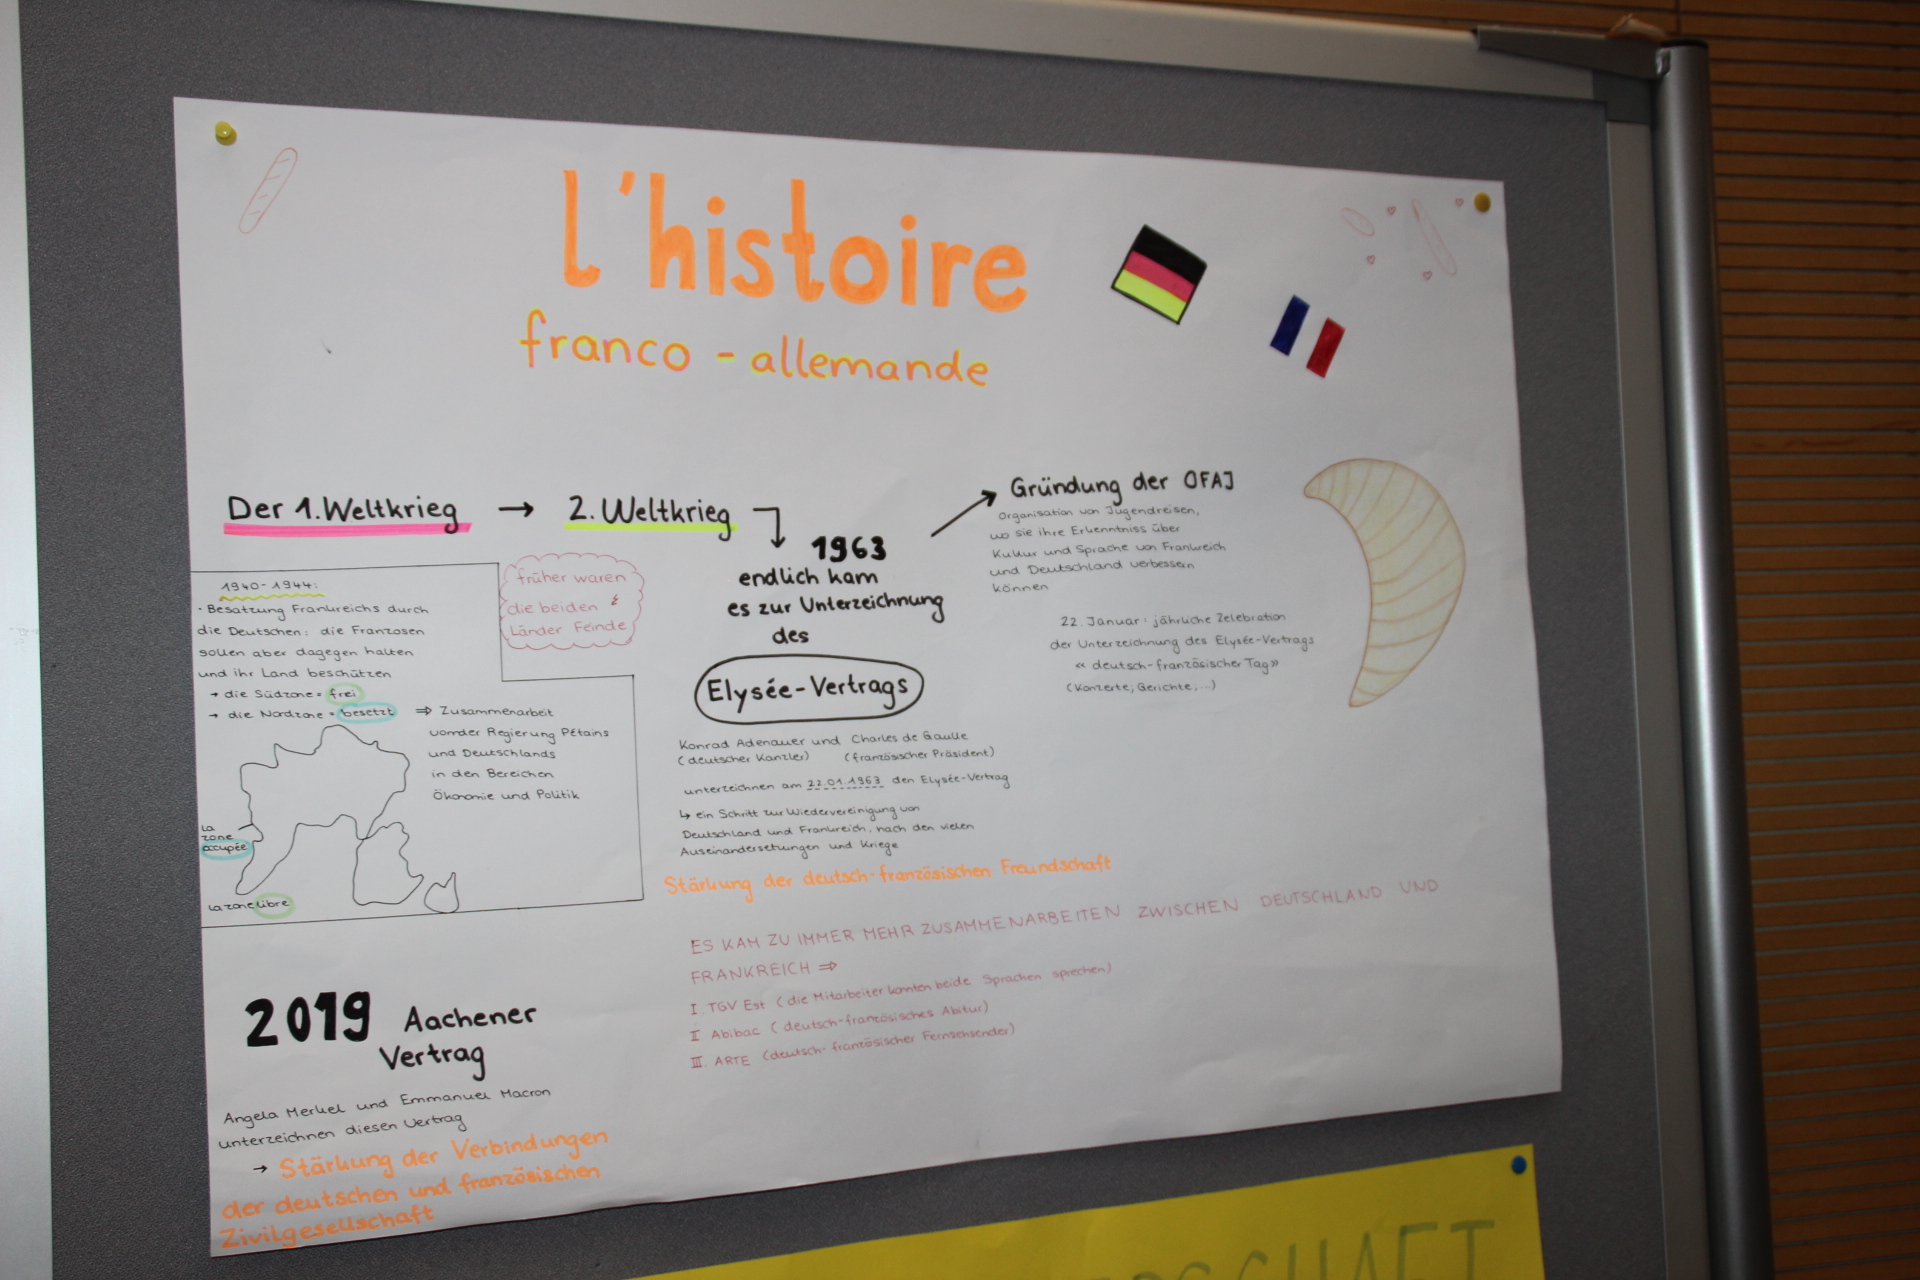 l'histoire
franco-allemande
Der 1. Weltkrieg → 2. Weltkrieg
1940-1944:
· Besatzung Frankreichs durch
die Deutschen: die Franzosen
sollen aber dagegen halten
und ihr Land beschützen
→ die Südzone = frei
→ die Nordzone = besetzt
⇒ Zusammenarbeit
von der Regierung Pétains
und Deutschlands
in den Bereichen
Ökonomie und Politik
la
zone
occupée
la zone libre
früher waren
die beiden
Länder Feinde
1963
endlich kam
es zur Unterzeichnung
des
Elysée-Vertrags
Konrad Adenauer und Charles de Gaulle
(deutscher Kanzler) (französischer Präsident)
unterzeichnen am 22.01.1963 den Elysée-Vertrag
↳ ein Schritt zur Wiedervereinigung von
Deutschland und Frankreich, nach den vielen
Auseinandersetzungen und Kriege
Stärkung der deutsch-französischen Freundschaft
Gründung der OFAJ
Organisation von Jugendreisen,
wo sie ihre Erkenntniss über
Kultur und Sprache von Frankreich
und Deutschland verbessern
können
22. Januar: jährliche Zelebration
der Unterzeichnung des Elysée-Vertrags
« deutsch-französischer Tag»
(Konzerte, Gerichte, ...)
ES KAM ZU IMMER MEHR ZUSAMMENARBEITEN ZWISCHEN DEUTSCHLAND UND
FRANKREICH ⇒
I. TGV Est (die Mitarbeiter konnten beide Sprachen sprechen)
II Abibac (deutsch-französisches Abitur)
III. ARTE (deutsch-französischer Fernsehsender)
2019 Aachener
Vertrag
Angela Merkel und Emmanuel Macron
unterzeichnen diesen Vertrag
→ Stärkung der Verbindungen
der deutschen und französischen
Zivilgesellschaft